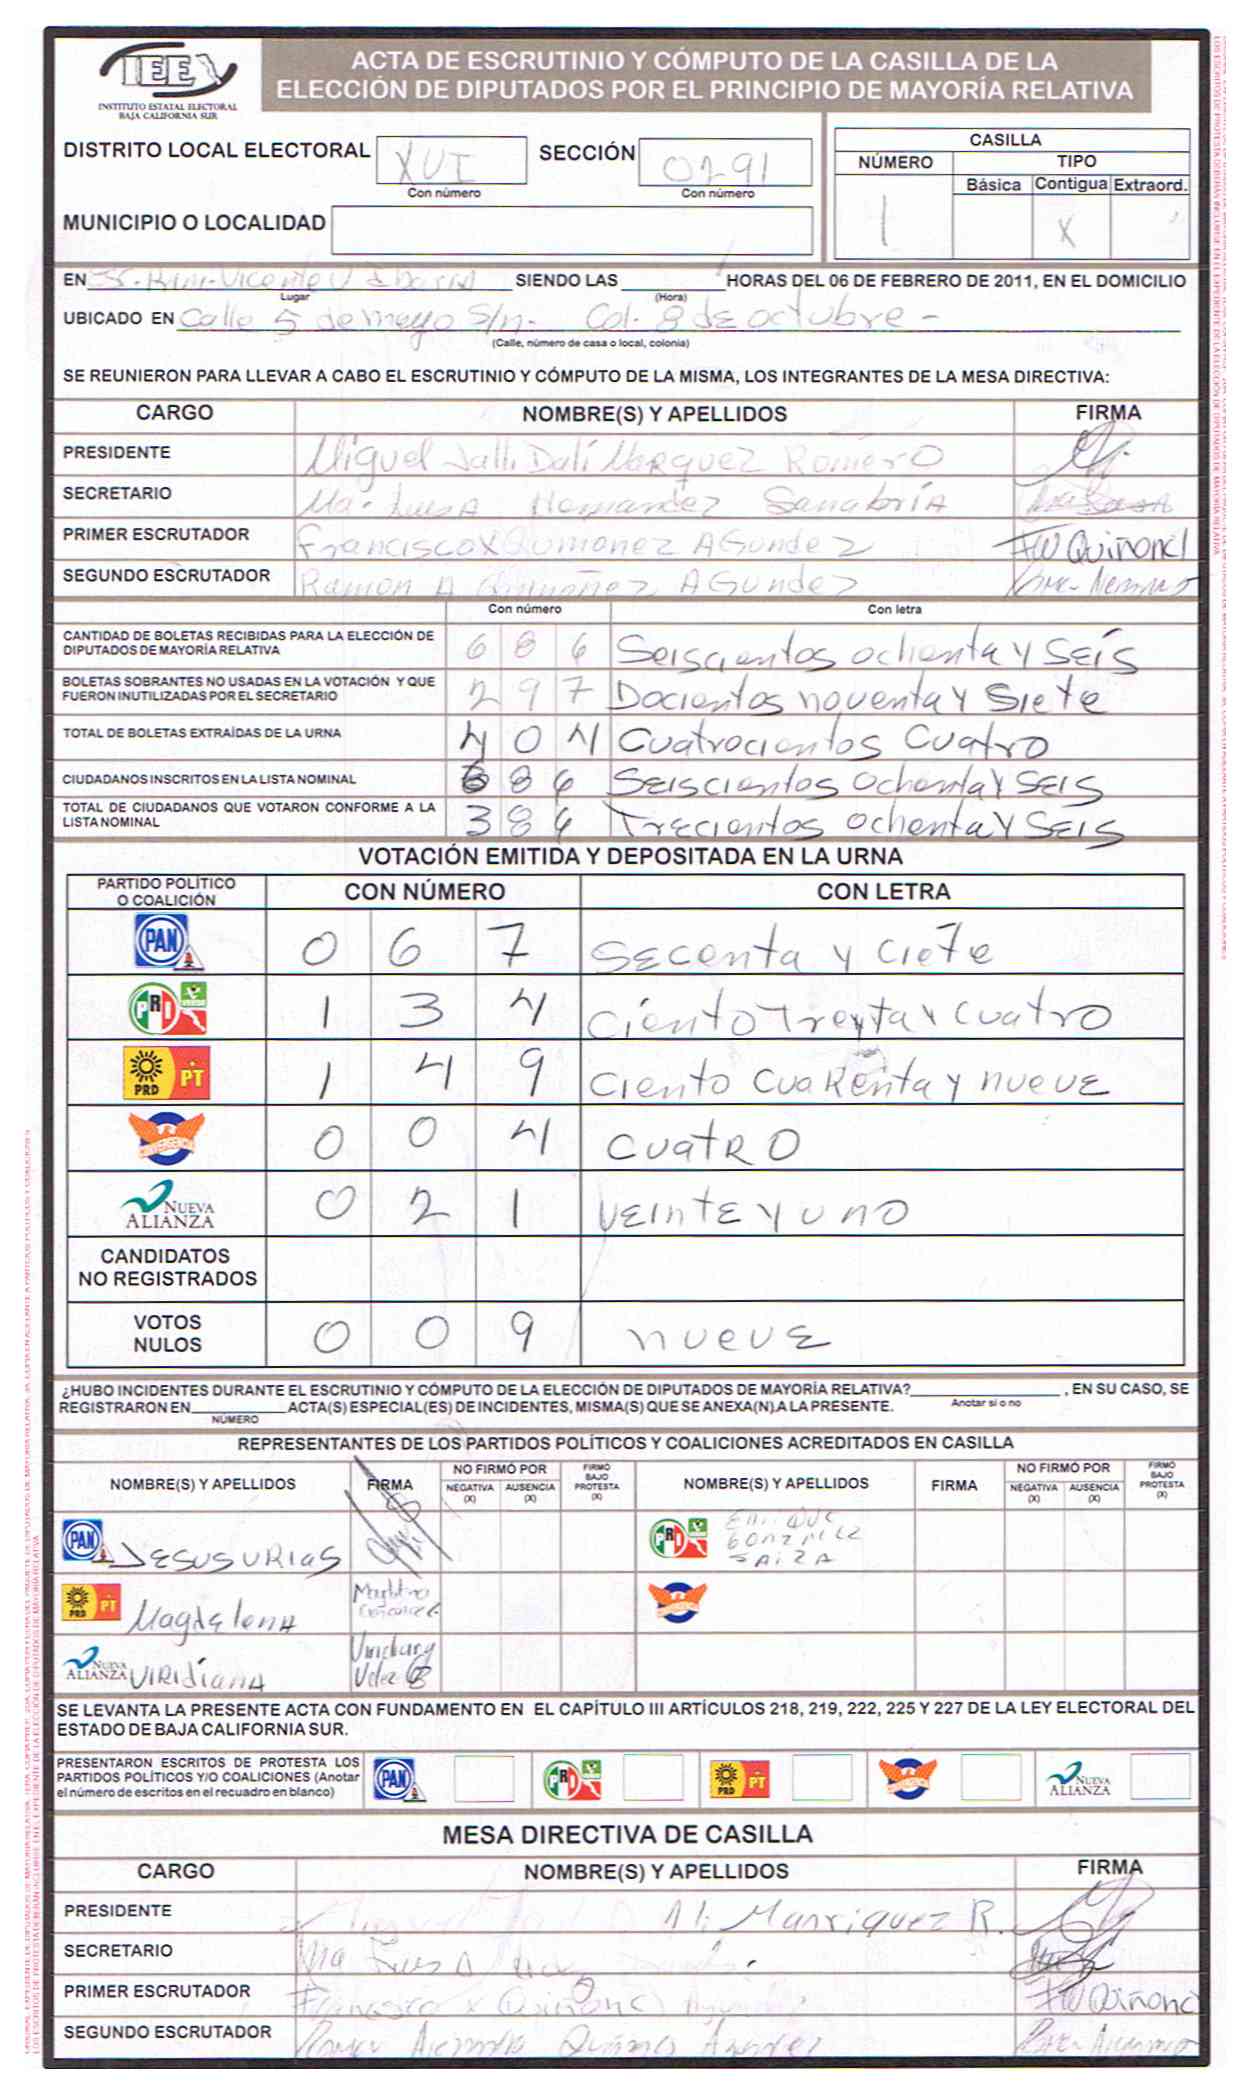 IEE
INSTITUTO ESTATAL ELECTORAL
BAJA CALIFORNIA SUR
ACTA DE ESCRUTINIO Y CÓMPUTO DE LA CASILLA DE LA
ELECCIÓN DE DIPUTADOS POR EL PRINCIPIO DE MAYORÍA RELATIVA
DISTRITO LOCAL ELECTORAL XVI SECCIÓN 0291
Con número Con número
CASILLA
NÚMERO TIPO
Básica Contigua Extraord.
1 X
MUNICIPIO O LOCALIDAD
EN Vicente V Ibarra SIENDO LAS HORAS DEL 06 DE FEBRERO DE 2011, EN EL DOMICILIO
Lugar (Hora)
UBICADO EN Calle 5 de mayo S/n- Col. 8 de octubre -
(Calle, número de casa o local, colonia)
SE REUNIERON PARA LLEVAR A CABO EL ESCRUTINIO Y CÓMPUTO DE LA MISMA, LOS INTEGRANTES DE LA MESA DIRECTIVA:
CARGO NOMBRE(S) Y APELLIDOS FIRMA
PRESIDENTE Miguel Dalí Romero
SECRETARIO Ma. Luisa Hernandez Sanabria
PRIMER ESCRUTADOR Francisco X Quiñonez Agundez FW Quiñonez
SEGUNDO ESCRUTADOR Ramon A Quiñonez Agundez
Con número Con letra
CANTIDAD DE BOLETAS RECIBIDAS PARA LA ELECCIÓN DE
DIPUTADOS DE MAYORÍA RELATIVA 6 8 6 Seiscientos ochenta y seís
BOLETAS SOBRANTES NO USADAS EN LA VOTACIÓN Y QUE
FUERON INUTILIZADAS POR EL SECRETARIO 2 9 7 Docientos noventa y siete
TOTAL DE BOLETAS EXTRAÍDAS DE LA URNA 4 0 4 Cuatrocientos Cuatro
CIUDADANOS INSCRITOS EN LA LISTA NOMINAL 6 8 6 Seiscientos ochenta y seis
TOTAL DE CIUDADANOS QUE VOTARON CONFORME A LA
LISTA NOMINAL 3 8 6 Trecientos ochenta y seis
VOTACIÓN EMITIDA Y DEPOSITADA EN LA URNA
PARTIDO POLÍTICO
O COALICIÓN CON NÚMERO CON LETRA
PAN 0 6 7 Secenta y ciete
PRI VERDE 1 3 4 Ciento Treyta y cuatro
PRD PT 1 4 9 Ciento cuarenta y nueve
CONVERGENCIA 0 0 4 cuatro
NUEVA
ALIANZA 0 2 1 veinte y uno
CANDIDATOS
NO REGISTRADOS
VOTOS
NULOS 0 0 9 nueve
¿HUBO INCIDENTES DURANTE EL ESCRUTINIO Y CÓMPUTO DE LA ELECCIÓN DE DIPUTADOS DE MAYORÍA RELATIVA? , EN SU CASO, SE
REGISTRARON EN ACTA(S) ESPECIAL(ES) DE INCIDENTES, MISMA(S) QUE SE ANEXA(N) A LA PRESENTE. Anotar sí o no
NÚMERO
REPRESENTANTES DE LOS PARTIDOS POLÍTICOS Y COALICIONES ACREDITADOS EN CASILLA
NOMBRE(S) Y APELLIDOS FIRMA NO FIRMÓ POR NEGATIVA (X) AUSENCIA (X) FIRMÓ BAJO PROTESTA (X) NOMBRE(S) Y APELLIDOS FIRMA NO FIRMÓ POR NEGATIVA (X) AUSENCIA (X) FIRMÓ BAJO PROTESTA (X)
PAN JESUS URIAS PRI ENRIQUE GONZALEZ
PRD PT Magdalena
NUEVA ALIANZA Viridiana
SE LEVANTA LA PRESENTE ACTA CON FUNDAMENTO EN EL CAPÍTULO III ARTÍCULOS 218, 219, 222, 225 Y 227 DE LA LEY ELECTORAL DEL
ESTADO DE BAJA CALIFORNIA SUR.
PRESENTARON ESCRITOS DE PROTESTA LOS
PARTIDOS POLÍTICOS Y/O COALICIONES (Anotar
el número de escritos en el recuadro en blanco) PAN PRI PRD PT NUEVA ALIANZA
MESA DIRECTIVA DE CASILLA
CARGO NOMBRE(S) Y APELLIDOS FIRMA
PRESIDENTE Manriquez R.
SECRETARIO Ma Luisa
PRIMER ESCRUTADOR Francisco X Quiñonez FW Quiñonez
SEGUNDO ESCRUTADOR